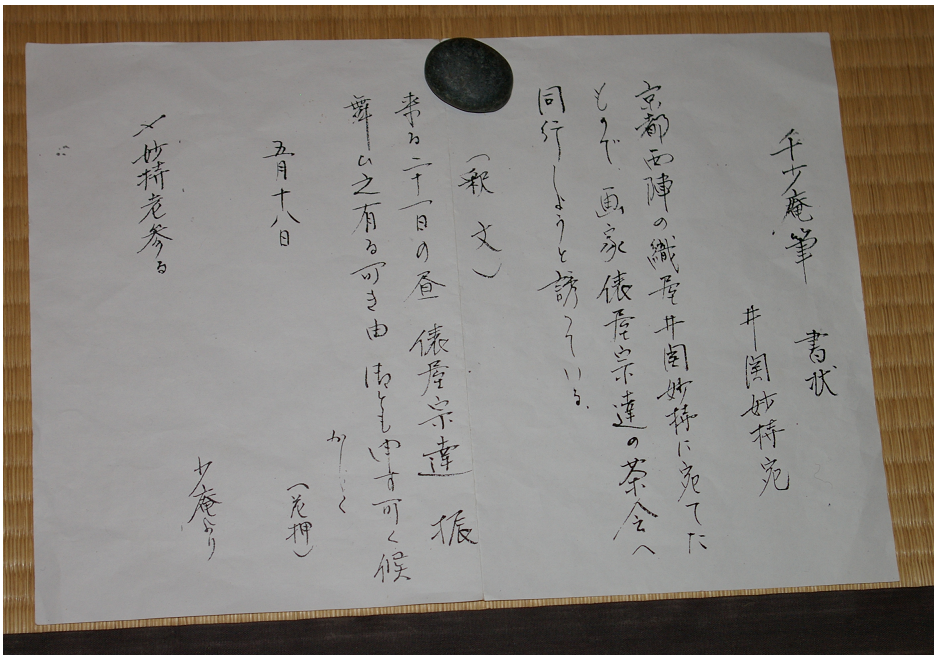 千少庵筆　書状
井関妙持宛
京都西陣の織屋井関妙持に宛てた
もので、画家俵屋宗達の茶会へ
同行しようと誘っている。
（釈文）
来る二十一日の昼　俵屋宗達　振
舞ひ之有る可き由　御とも申す可く候
かしく
五月十八日　（花押）
少庵より
〆妙持老参る